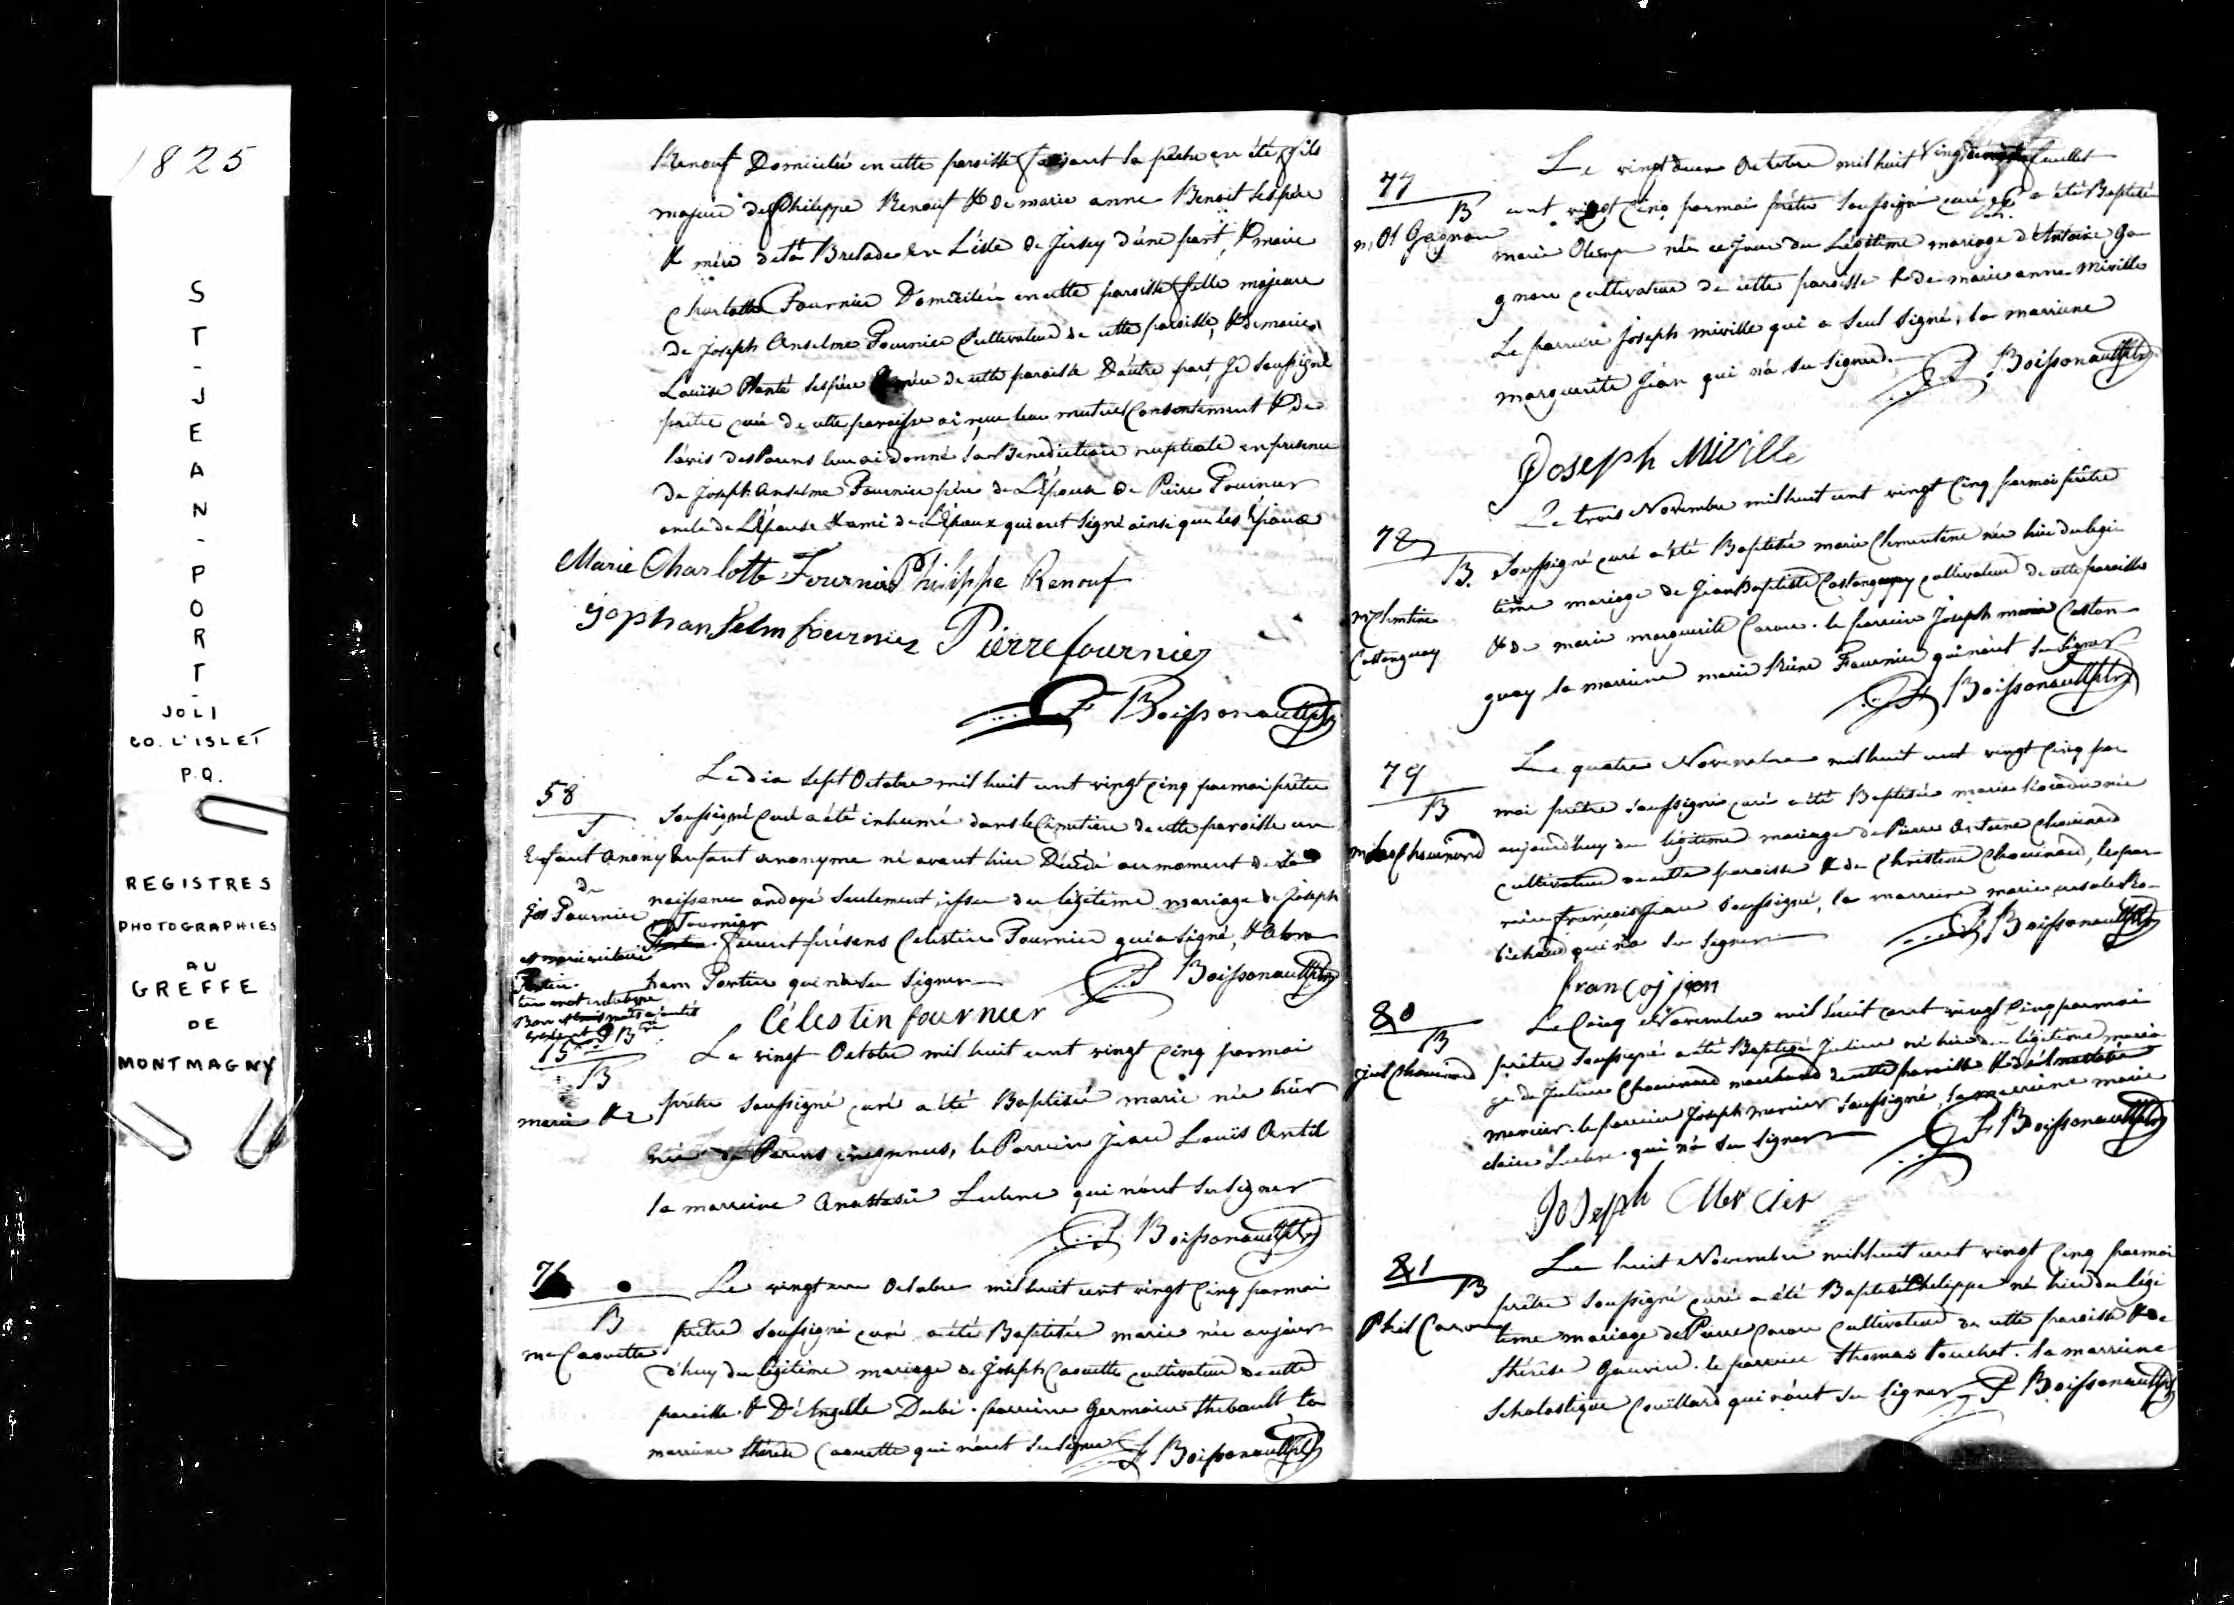 1825
ST-JEAN-PORT-
JOLI
CO. L'ISLET
P.Q.
REGISTRES
PHOTOGRAPHIES
AU
GREFFE
DE
MONTMAGNY
Renouf Domicilié en cette paroisse faisant la pêche en été, fils
majeur de Philippe Renouf & de marie anne Benoit ses père
& mère de St Brelade en L'isle de Jersey d'une part, & marie
Charlotte Fournier Domiciliée en cette paroisse fille majeure
de Joseph Anselme Fournier Cultivateur de cette paroisse, & de marie
Louise Planté ses père & mère de cette paroisse D'autre part, Je soussigné
prêtre curé de cette paroisse ai reçu leur mutuel Consentement & de
l'avis des Parens leur ai donné la Benediction nuptiale en presence
de Joseph Anselme Fournier père de L'épouse de Pierre Fournier
oncle de L'épouse & ami de L'époux qui ont signé ainsi que les Epoux
Marie Charlotte Fournier Philippe Renouf
Joseph anselm fournier Pierre fournier
F Boissonnault ptr
58
S
Enfant Anony
de
Jos Fournier
Le dix sept Octobre mil huit cent vingt Cinq par moi prêtre
soussigné Curé a été inhumé dans le Cimetière de cette paroisse un
Enfant anonyme né avant hier Décédé au moment de sa
naissance ondoyé seulement, issu du légitime mariage de Joseph
Fournier
furent présens Celestin Fournier qui a signé, & Abra
ham Fortin qui n'a su signer
F Boissonnault ptr
Célestin fournier
75
B
marie
Le vingt Octobre mil huit cent vingt Cinq par moi
prêtre soussigné curé a été Baptisée marie née hier
de Parens inconnus, le Parrain Jean Louis Antil
la marraine Anastasie Leclerc qui n'ont su signer
F Boissonnault ptr
76
B
me Caouette
Le vingt un Octobre mil huit cent vingt Cinq par moi
prêtre soussigné curé a été Baptisée marie née aujour
d'huy du légitime mariage de Joseph Caouette cultivateur de cette
paroisse & D'Angelle Dubé. parrain Germain Thibault la
marraine thérèse Caouette qui n'ont su signer F Boissonnault ptr
77
B
m Ol Gagnon
Le vingt deux Octobre mil huit
cent vingt Cinq par moi prêtre soussigné curé a été Baptisée
marie Olempe née ce jour du Légitime mariage d'Antoine Ga
gnon cultivateur de cette paroisse & de marie anne Miville
Le parrain Joseph miville qui a seul signé, la marraine
marguerite Jean qui n'a su signer. F Boissonnault ptr
Joseph Miville
78
B.
m Clementine
Castonguay
Le trois Novembre mil huit cent vingt Cinq par moi prêtre
soussigné curé a été Baptisée marie Clementine née hier du legi
time mariage de Jean Baptiste Castonguay cultivateur de cette paroisse
& de marie marguerite Caron. le parrain Joseph marie Caston
guay la marraine marie Reine Fournier qui n'ont su signer
F Boissonnault ptr
79
B
Chouinard
Le quatre Novembre mil huit cent vingt Cinq par
moi prêtre soussigné curé a été Baptisée marie Léocadie née
aujourd'huy du légitime mariage de Pierre Antoine Chouinard
cultivateur de cette paroisse & de Christine Chouinard, le par
rain françois Jean soussigné, la marraine marie Ro
bichaud qui n'a su signer F Boissonnault ptr
françoi jean
80
B
Jul Chouinard
Le Cinq Novembre mil huit cent vingt Cinq par moi
prêtre soussigné a été Baptisé Julien né hier du légitime maria
ge de Julien Chouinard marchand de cette paroisse &
mercier. le parrain Joseph mercier soussigné, la marraine marie
claire Leclerc qui n'a su signer F Boissonnault ptr
Joseph Mercier
81
B
Phil Caron
Le huit Novembre mil huit cent vingt Cinq par moi
prêtre soussigné curé a été Baptisé Philippe né hier du légi
time mariage de Pierre Caron cultivateur de cette paroisse & de
thérèse Gauvin. le parrain Thomas touchet. la marraine
Scholastique Couillard qui n'ont su signer F Boissonnault ptr